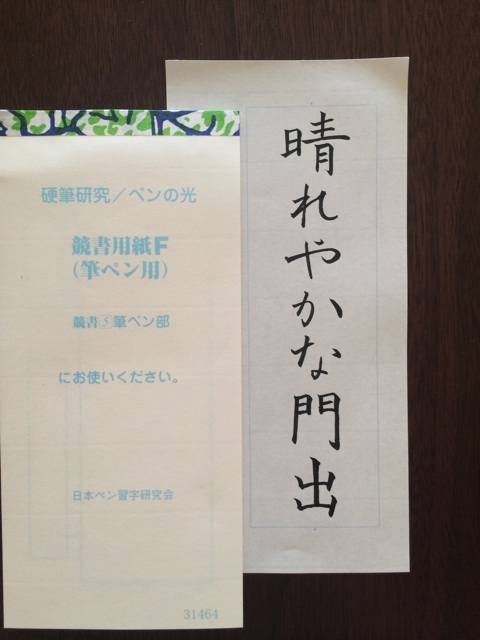 硬筆研究/ペンの光
競書用紙F
(筆ペン用)
競書⑤筆ペン部
にお使いください。
日本ペン習字研究会
31464
晴れやかな門出